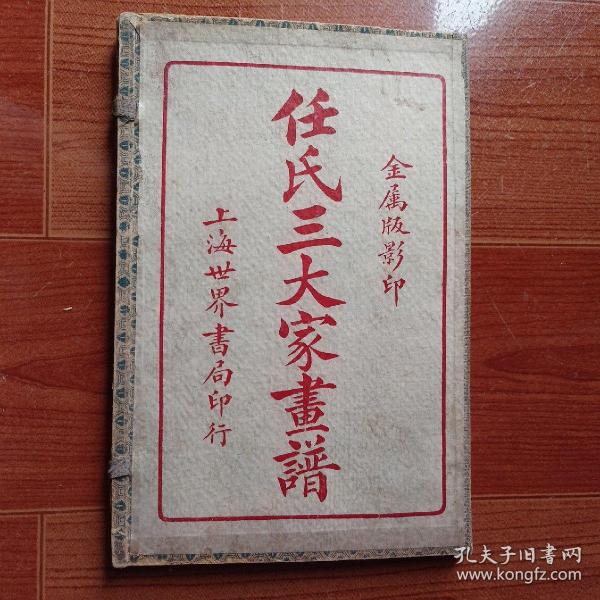 金属版影印
任氏三大家畫譜
上海世界書局印行
孔夫子旧書网
www.kongfz.com